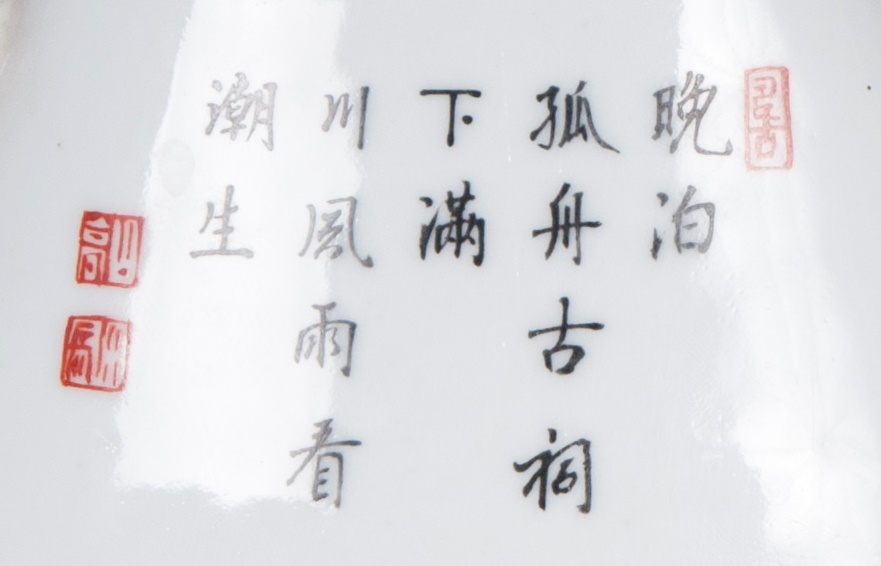 晚泊
孤舟古祠
下滿
川風雨看
潮生